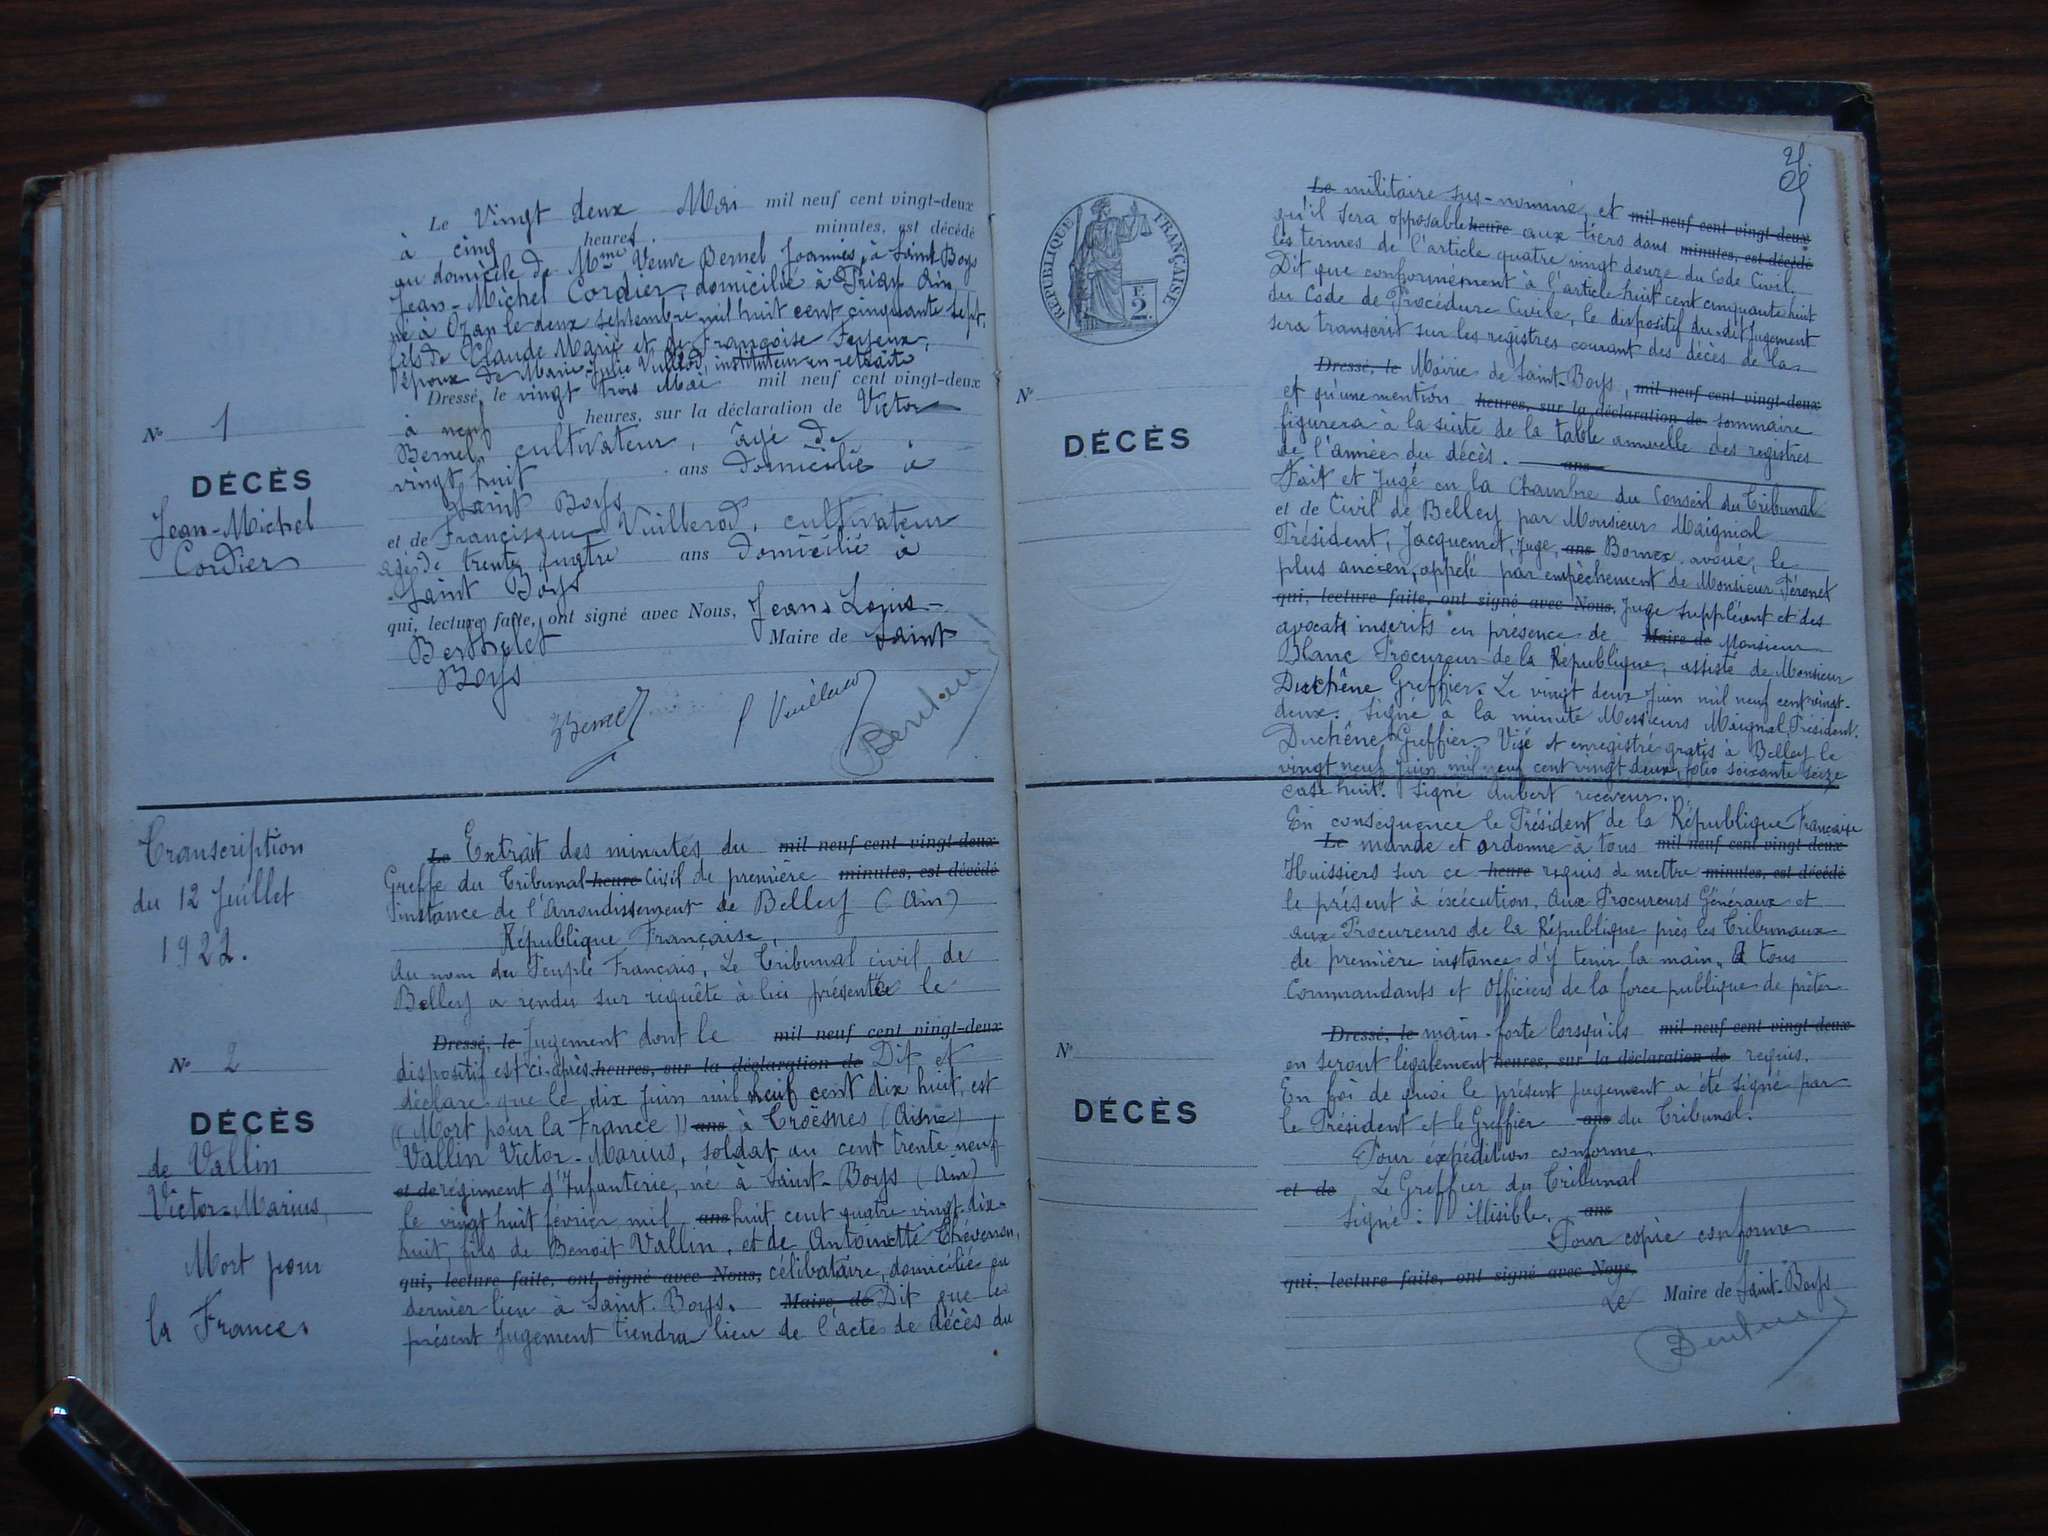 Le Vingt deux Mai mil neuf cent vingt-deux
à cinq heures minutes, est décédé
au domicile de Mme Veuve Bernel Joannès, à Saint Boys
Jean-Michel Cordier, domicilié à Ain
né à Ozan le deux septembre mil huit cent cinquante sept,
fils de Claude Marie et de Françoise Feyeux,
époux de Marie-Julie instituteur en retraite
Dressé, le vingt trois Mai mil neuf cent vingt-deux
à neuf heures, sur la déclaration de Victor
Bernel, cultivateur, âgé de
vingt huit ans domicilié à
Saint Boys
et de Francisque Vuillerod, cultivateur
âgé de trente quatre ans domicilié à
Saint Boys
qui, lecture faite, ont signé avec Nous, Jean-Louis
Berthelet Maire de Saint
Boys
Nº 1
DÉCÈS
Jean-Michel
Cordier
Transcription
du 12 Juillet
1922.
Nº 2
DÉCÈS
de Vallin
Victor-Marius,
Mort pour
la France.
Le Extrait des minutes du mil neuf cent vingt-deux
Greffe du Tribunal heure Civil de première minutes, est décédé
instance de l'Arrondissement de Belley (Ain)
République Française,
Au nom du Peuple Français, Le Tribunal civil de
Belley a rendu sur requête à lui présentée le
Dressé, le Jugement dont le mil neuf cent vingt-deux
dispositif est ci-après heures, sur la déclaration de Dit et
déclare que le dix Juin mil neuf cent dix huit, est
(( Mort pour la France )) ans à Troësnes (Aisne)
Vallin Victor-Marius, soldat au cent trente neuf
et de régiment d'Infanterie, né à Saint-Boys (Ain)
le vingt huit février mil ans huit cent quatre vingt-dix-
huit, fils de Benoit Vallin, et de Antoinette Thévenon,
qui, lecture faite, ont signé avec Nous, célibataire, domicilié en
dernier lieu à Saint-Boys. Maire de Dit que le
présent Jugement tiendra lieu de l'acte de décès du
Le militaire sus-nommé, et mil neuf cent vingt-deux
qu'il sera opposable heure aux tiers dans minutes, est décédé
les termes de l'article quatre vingt douze du Code Civil.
Dit que conformément à l'article huit cent cinquante huit
du Code de Procédure Civile, le dispositif du dit Jugement
sera transcrit sur les registres courant des décès de la
Dressé, le Mairie de Saint-Boys, mil neuf cent vingt-deux
et qu'une mention heures, sur la déclaration de sommaire
figurera à la suite de la table annuelle des registres
de l'année du décès. ans
Fait et Jugé en la Chambre du Conseil du Tribunal
et de Civil de Belley par Monsieur Maignial
Président, Jacquemet, Juge, ans Bornex avoué, le
plus ancien, appelé par empêchement de Monsieur Péronet
qui, lecture faite, ont signé avec Nous, Juge suppléant et des
avocats inscrits en présence de Maire de Monsieur
Blanc Procureur de la République, assisté de Monsieur
Duchêne Greffier. Le vingt deux Juin mil neuf cent vingt-
deux. Signé à la minute Messieurs Maignal, Président.
Duchêne Greffier. Visé et enregistré gratis à Belley le
vingt neuf Juin mil neuf cent vingt deux, folio soixante seize
case huit. Signé Aubert receveur.
En conséquence le Président de la République Française
Le mande et ordonne à tous mil neuf cent vingt-deux
Huissiers sur ce heure requis de mettre minutes, est décédé
le présent à éxécution. Aux Procureurs Généraux et
aux Procureurs de la République près les Tribunaux
de première instance d'y tenir la main. A tous
Commandants et Officiers de la force publique de prêter
Dressé, le main-forte lorsqu'ils mil neuf cent vingt-deux
en seront légalement heures, sur la déclaration de requis.
En foi de quoi le présent jugement a été signé par
le Président et le Greffier ans du Tribunal.
Pour éxpédition conforme
et de Le Greffier du Tribunal
Signé : illisible. ans
Pour copie conforme
qui, lecture faite, ont signé avec Nous,
Le Maire de Saint-Boys
RÉPUBLIQUE FRANÇAISE
2
Nº
DÉCÈS
Nº
DÉCÈS